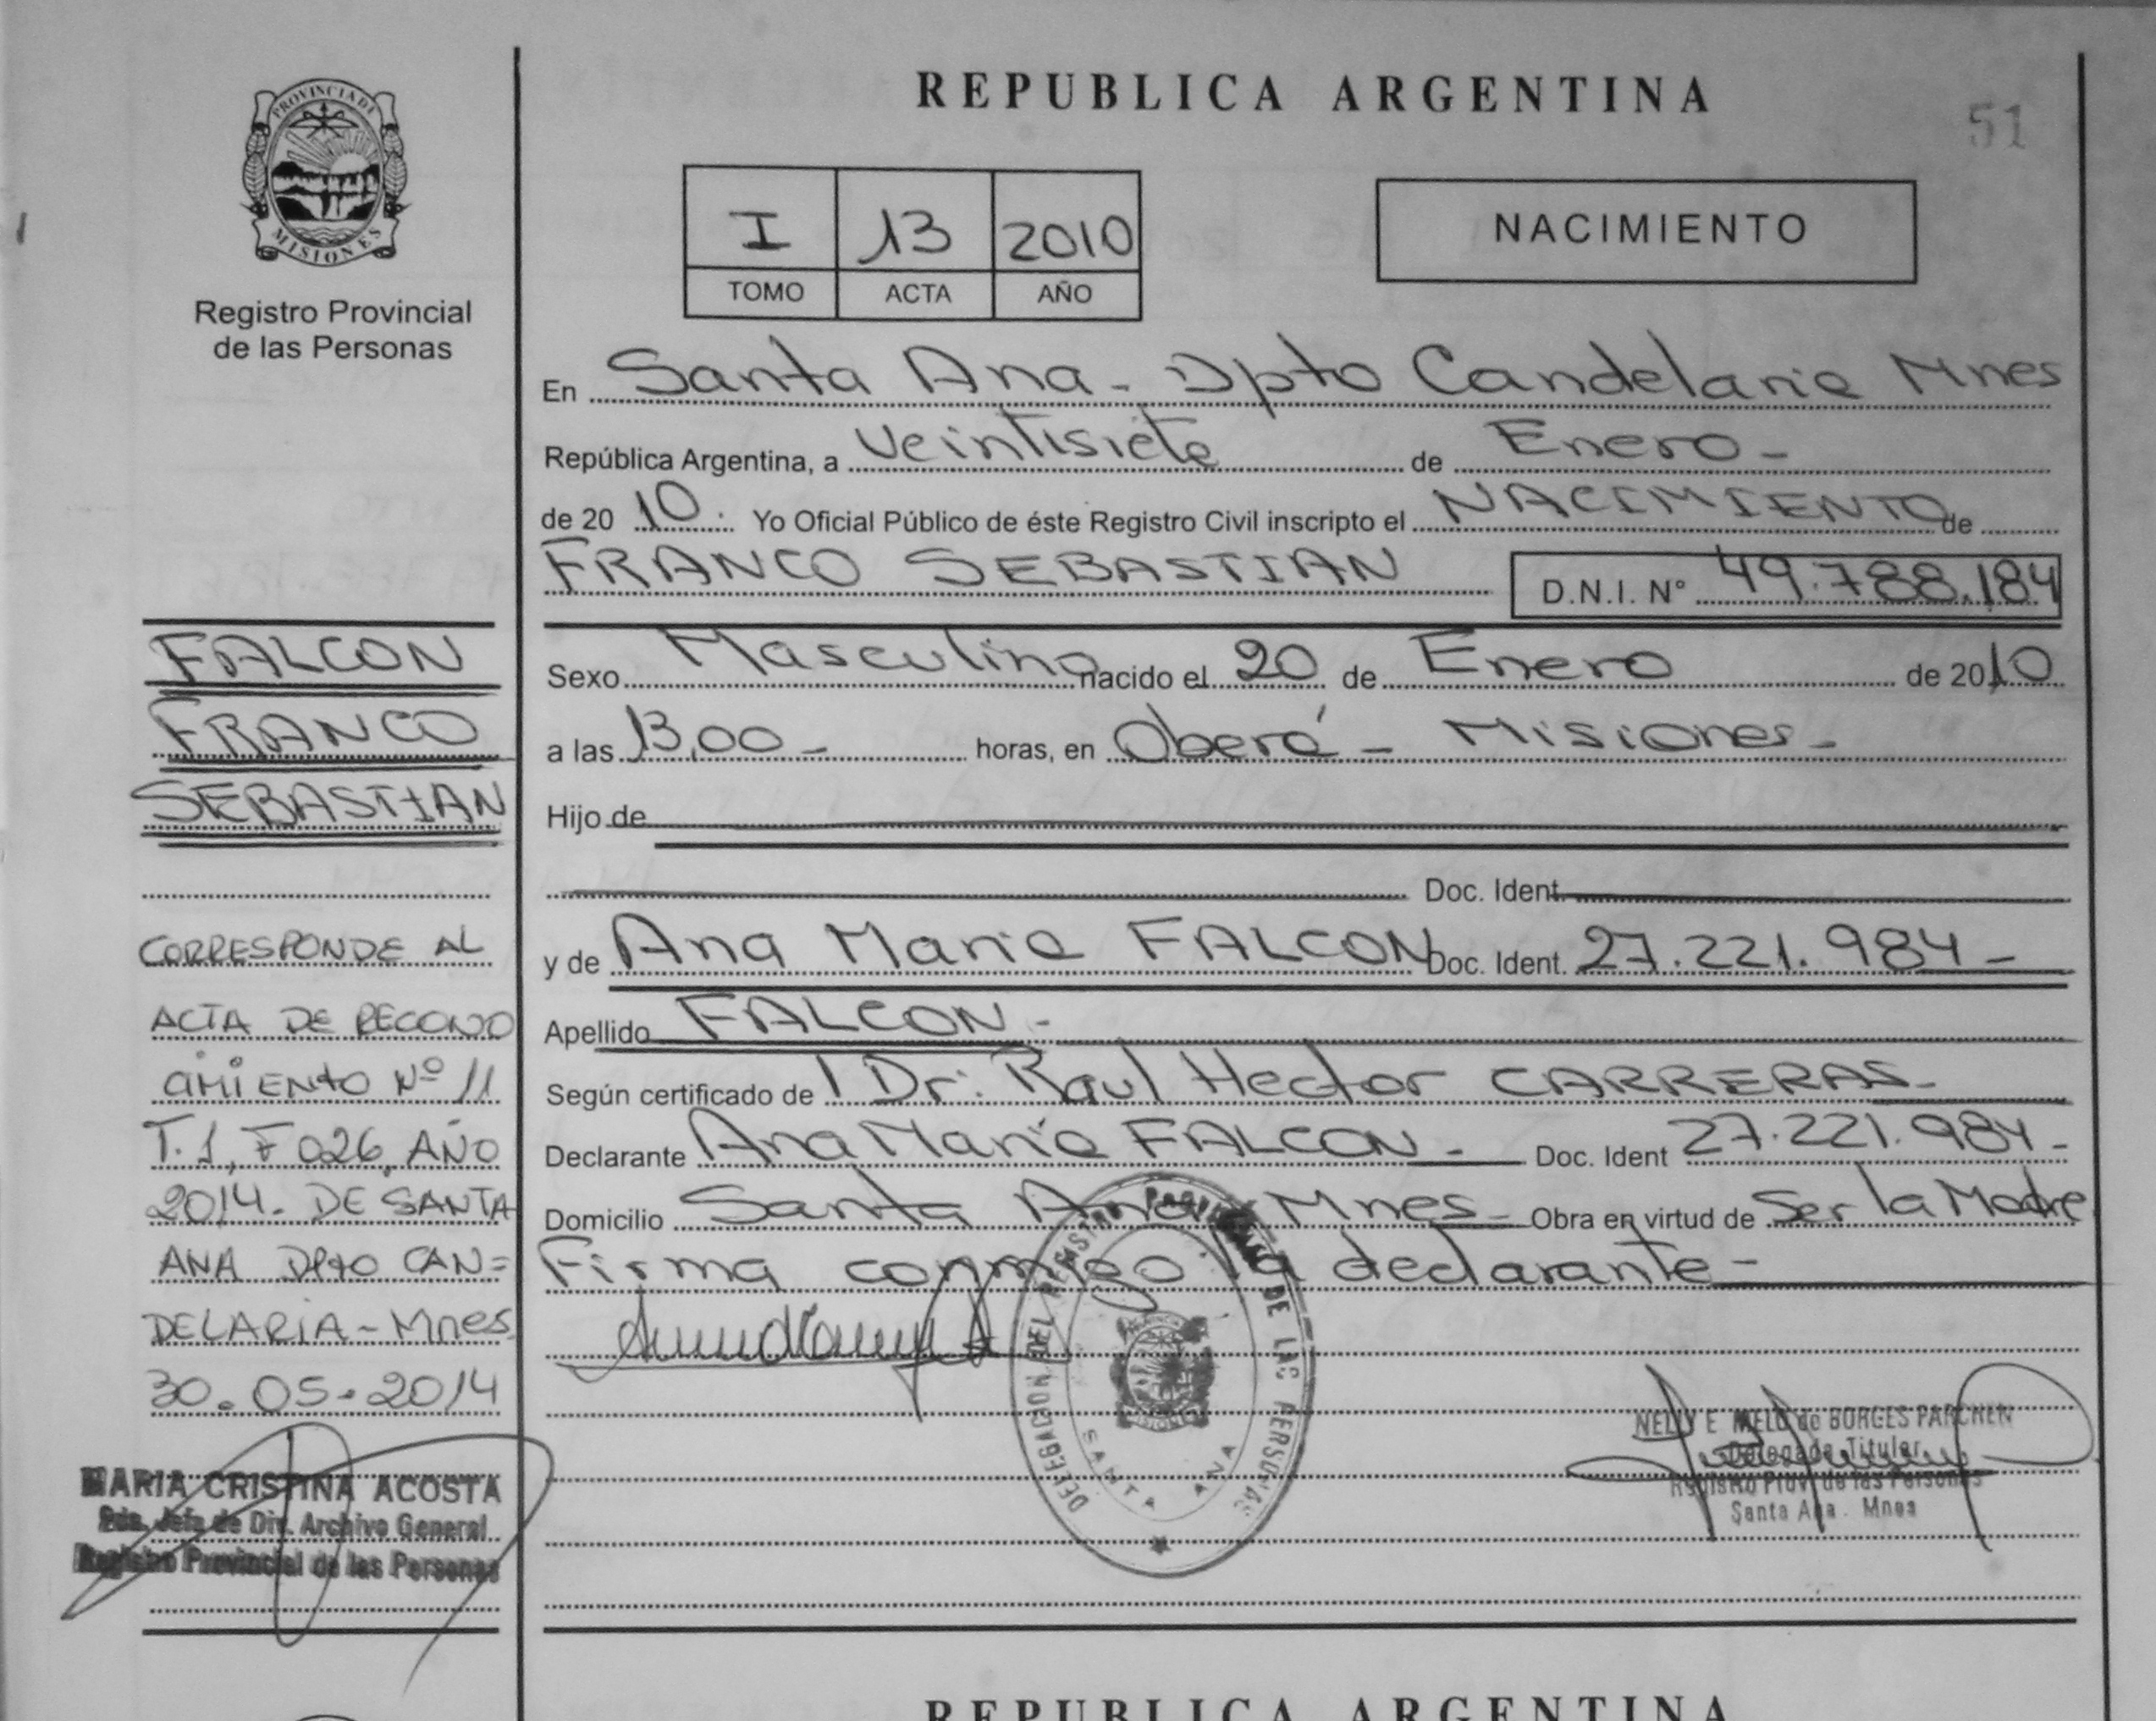 REPUBLICA ARGENTINA
51
PROVINCIA DE
MISIONES
Registro Provincial
de las Personas
I 13 2010
TOMO ACTA AÑO
NACIMIENTO
En Santa Ana - Dpto Candelaria Mnes
República Argentina, a Veintisiete de Enero -
de 20 10. Yo Oficial Público de éste Registro Civil inscripto el NACIMIENTO de
FRANCO SEBASTIAN D.N.I. Nº 49.788.184
Sexo Masculino nacido el 20 de Enero de 2010
a las 13,00 - horas, en Oberá - Misiones -
Hijo de
Doc. Ident.
y de Ana Maria FALCON Doc. Ident. 27.221.984 -
Apellido FALCON -
Según certificado de l Dr. Raul Hector CARRERAS -
Declarante Ana Maria FALCON - Doc. Ident 27.221.984 -
Domicilio Santa Ana Mnes - Obra en virtud de Ser la Madre
Firma conmigo la declarante -
FALCON
FRANCO
SEBASTIAN
CORRESPONDE AL
ACTA DE RECONO
CIMIENTO Nº 11
T. 1, F 026, AÑO
2014. DE SANTA
ANA Dpto CAN=
DELARIA - Mnes
30-05-2014
MARIA CRISTINA ACOSTA
Jefa de Div. Archivo General
Registro Provincial de las Personas
DELEGACION DEL REGISTRO DE LAS PERSONAS
SANTA ANA
NELLY E MELO de BORGES PARCHEN
Delegada Titular
Registro Prov. de las Personas
Santa Ana - Mnes
REPUBLICA ARGENTINA